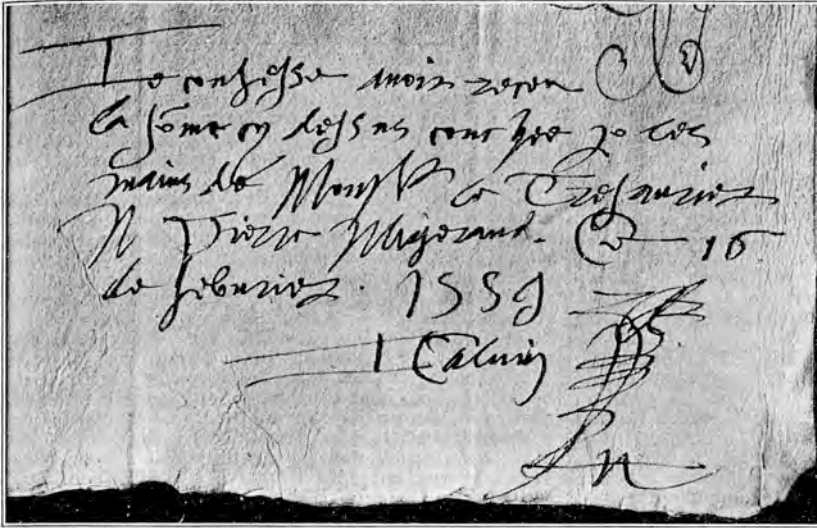 Je confesse avoir receu
la some cy dessus couchee p les
mains de Monsr le Tresaurier
N Pierre Migerand. Ce 16
de febvrier. 1559
J Calvin